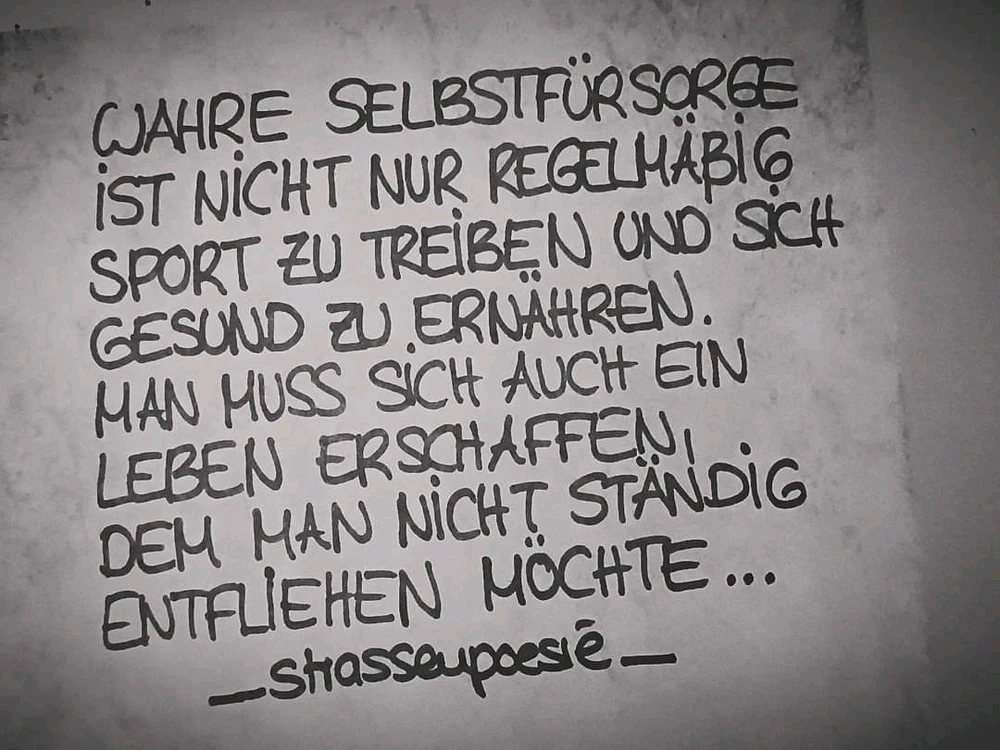 WAHRE SELBSTFÜRSORGE
iST NiCHT NUR REGELMÄßiG
SPORT ZU TREiBEN UND SiCH
GESUND ZU ERNÄHREN.
MAN MUSS SiCH AUCH EIN
LEBEN ERSCHAFFEN,
DEM MAN NiCHT STÄNDiG
ENTFLiEHEN MÖCHTE...
_strassenpoesie_